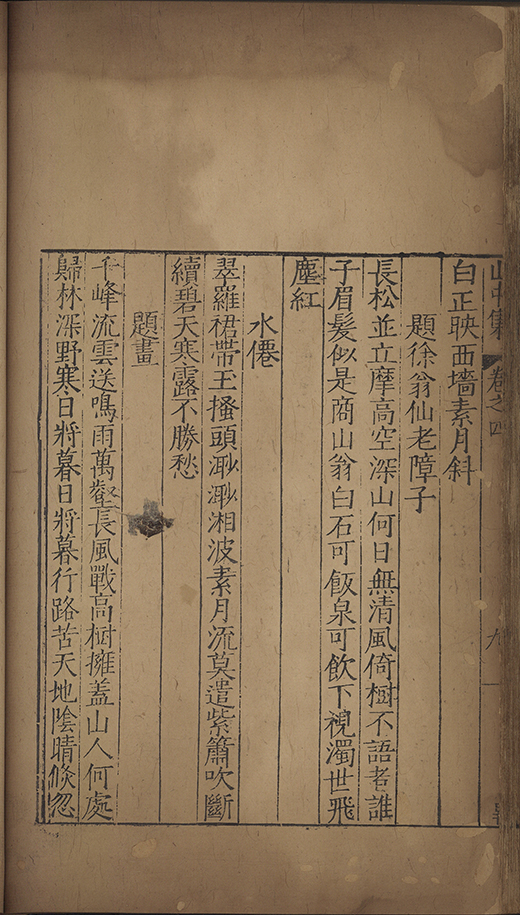 山中集 卷之四 九
白正映西墻素月斜
題徐翁仙老障子
長松並立摩高空深山何日無清風倚樹不語者誰
子眉髮似是商山翁白石可飯泉可飲下視濁世飛
塵紅
水僊
翠羅裙帶玉搔頭渺渺湘波素月流莫遣紫簫吹斷
續碧天寒露不勝愁
題畫
千峰流雲送鳴雨萬壑長風戰高樹擁蓋山人何處
歸林深野寒日將暮日將暮行路苦天地陰晴倏忽